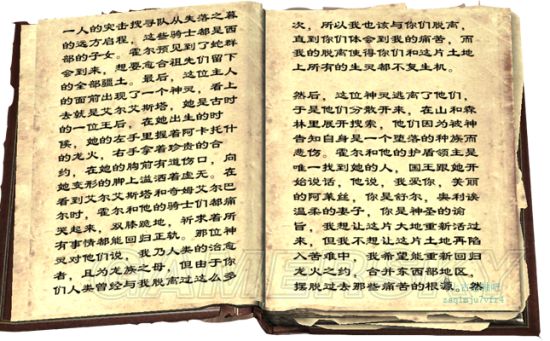 一人的突击搜寻队从失落之幕
的远方启程，这些骑士都是西
部的子女。霍尔预见到了蛇群
会到来，想要愈合祖先们留下
的全部疆土。最后，这位主人
的面前出现了一个神灵，看上
去就是艾尔艾斯塔，她是古时
的一位王后，在她出生的时
候，她的左手里握着阿卡托什
的龙火，右手拿着珍贵的合
约，在她的胸前有道伤口，向
她变形的脚上溢洒着虚无。在
看到艾尔艾斯塔和奇姆艾尔巴
尔时，霍尔和他的骑士们都痛
哭起来，双膝跪地，祈求着所
有事情都能回归正轨。那位神
灵对他们说，我乃人类的治愈
者，且为龙族之母，但由于你
们人类曾经与我脱离过这么多
次，所以我也该与你们脱离，
直到你们体会到我的痛苦，而
我的脱离使得你们和这片土地
上所有的生灵都不复生机。
然后，这位神灵逃离了他们，
于是他们分散开来，在山和森
林里展开搜索，他们因为被神
告知自身是一个堕落的种族而
悲伤。霍尔和他的护盾领主是
唯一找到她的人，国王跟她开
始说话，他说，我爱你，美丽
的阿莱丝，你是舒尔，奥利诶
温柔的妻子，你是神圣的谕
旨，我想让这片大地重新活过
来，但我不想让这片土地再陷
入苦难中，我希望能重新回归
龙火之约，合并东西部地区，
摆脱过去那些痛苦的根源。然
GAMERSKY
zaq1mju7vfr4